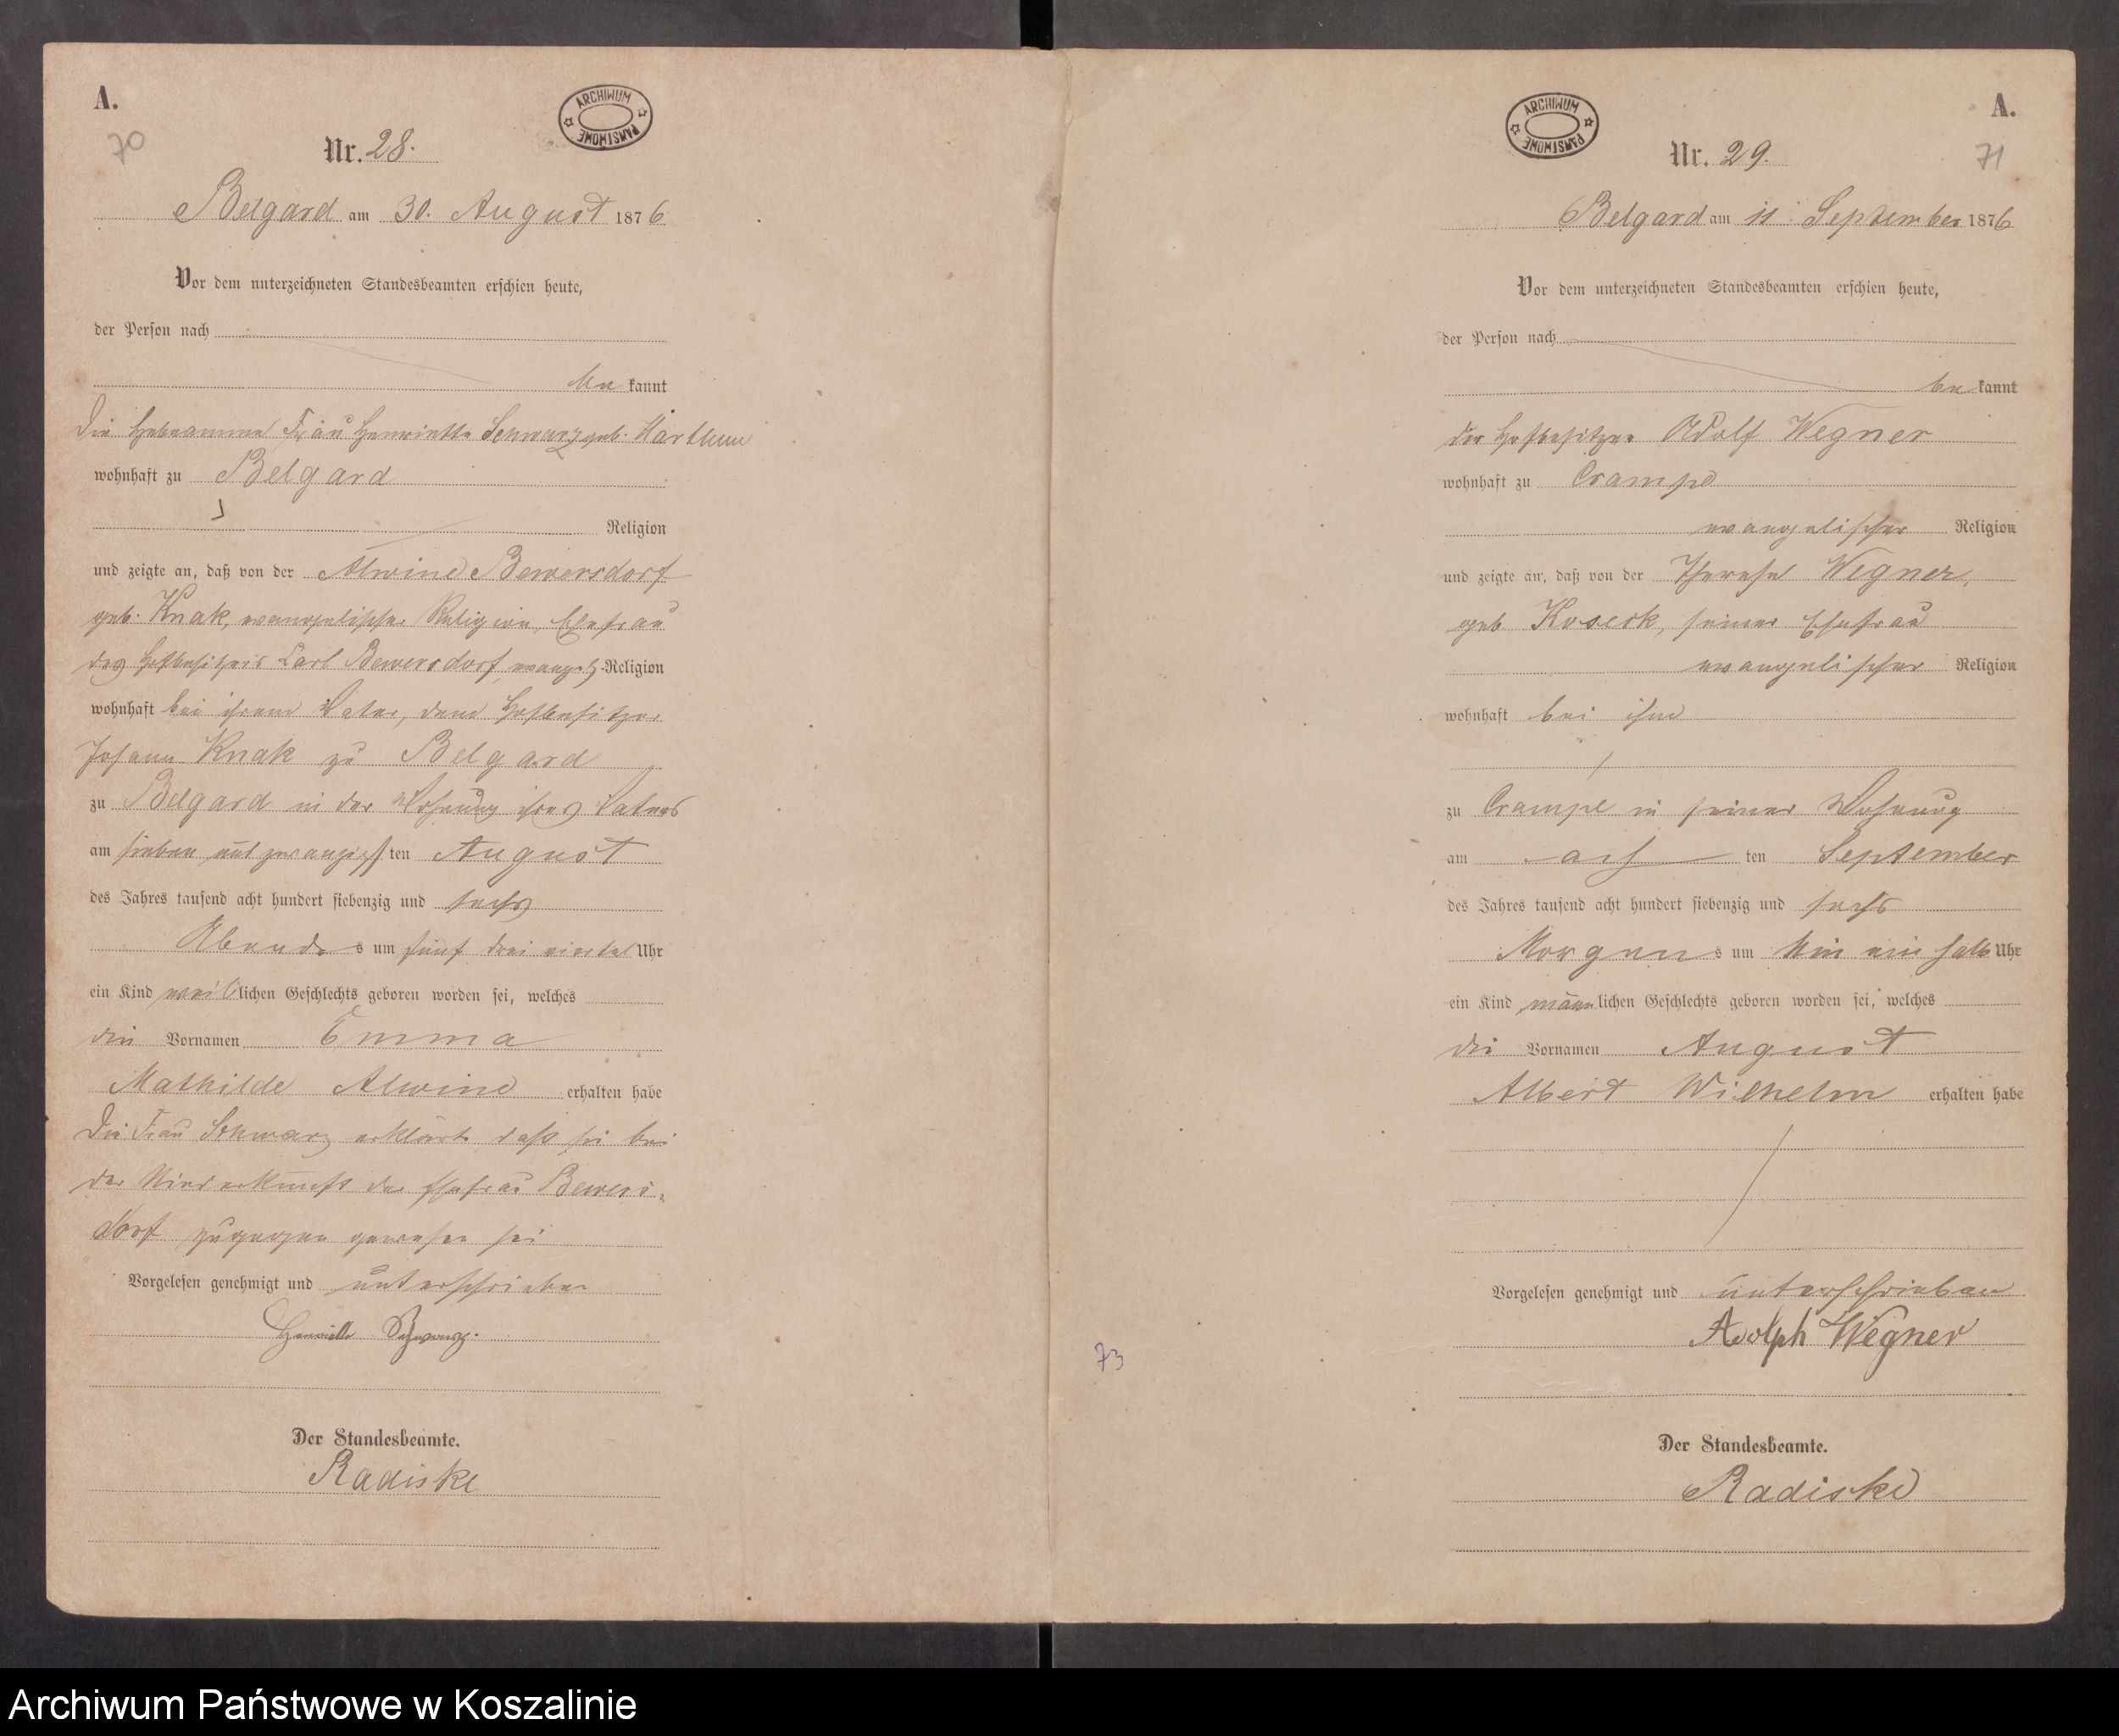 A.
70
ARCHIWUM PAŃSTWOWE
Nr. 28.
Belgard am 30. August 1876
Vor dem unterzeichneten Standesbeamten erschien heute,
der Person nach
be kannt
Die Hebeamme Frau Henriette Schwarz geb.
wohnhaft zu Belgard
Religion
und zeigte an, daß von der Alwine Bewersdorf
geb. Knak, evangelischer Religion, Ehefrau
des Hofbesitzers Carl Bewersdorf, evangel. Religion
wohnhaft bei ihrem Vater, dem Hofbesitzer
Johann Knak zu Belgard
zu Belgard in der Wohnung ihres Vaters
am sieben und zwanzigsten August
des Jahres tausend acht hundert siebenzig und sechs
Abends um fünf drei viertel Uhr
ein Kind weiblichen Geschlechts geboren worden sei, welches
die Vornamen Emma
Mathilde Alwine erhalten habe
Die Frau Schwarz erklärt, daß sie bei
der Niederkunft der Ehefrau Bewers-
dorf zugegen gewesen sei
Vorgelesen genehmigt und unterschrieben
Henriette Schwarz.
Der Standesbeamte.
Radiske
A.
71
ARCHIWUM PAŃSTWOWE
Nr. 29.
Belgard am 11. September 1876
Vor dem unterzeichneten Standesbeamten erschien heute,
der Person nach
be kannt
der Hofbesitzer Adolf Wegner
wohnhaft zu Crampe
evangelischer Religion
und zeigte an, daß von der Therese Wegner,
geb. Koseck, seiner Ehefrau
evangelischer Religion
wohnhaft bei ihm
zu Crampe in seiner Wohnung
am ach ten September
des Jahres tausend acht hundert siebenzig und sechs
Morgens um ein halb Uhr
ein Kind männlichen Geschlechts geboren worden sei, welches
die Vornamen August
Albert Wilhelm erhalten habe
Vorgelesen genehmigt und unterschrieben
Adolph Wegner
73
Der Standesbeamte.
Radiske
Archiwum Państwowe w Koszalinie